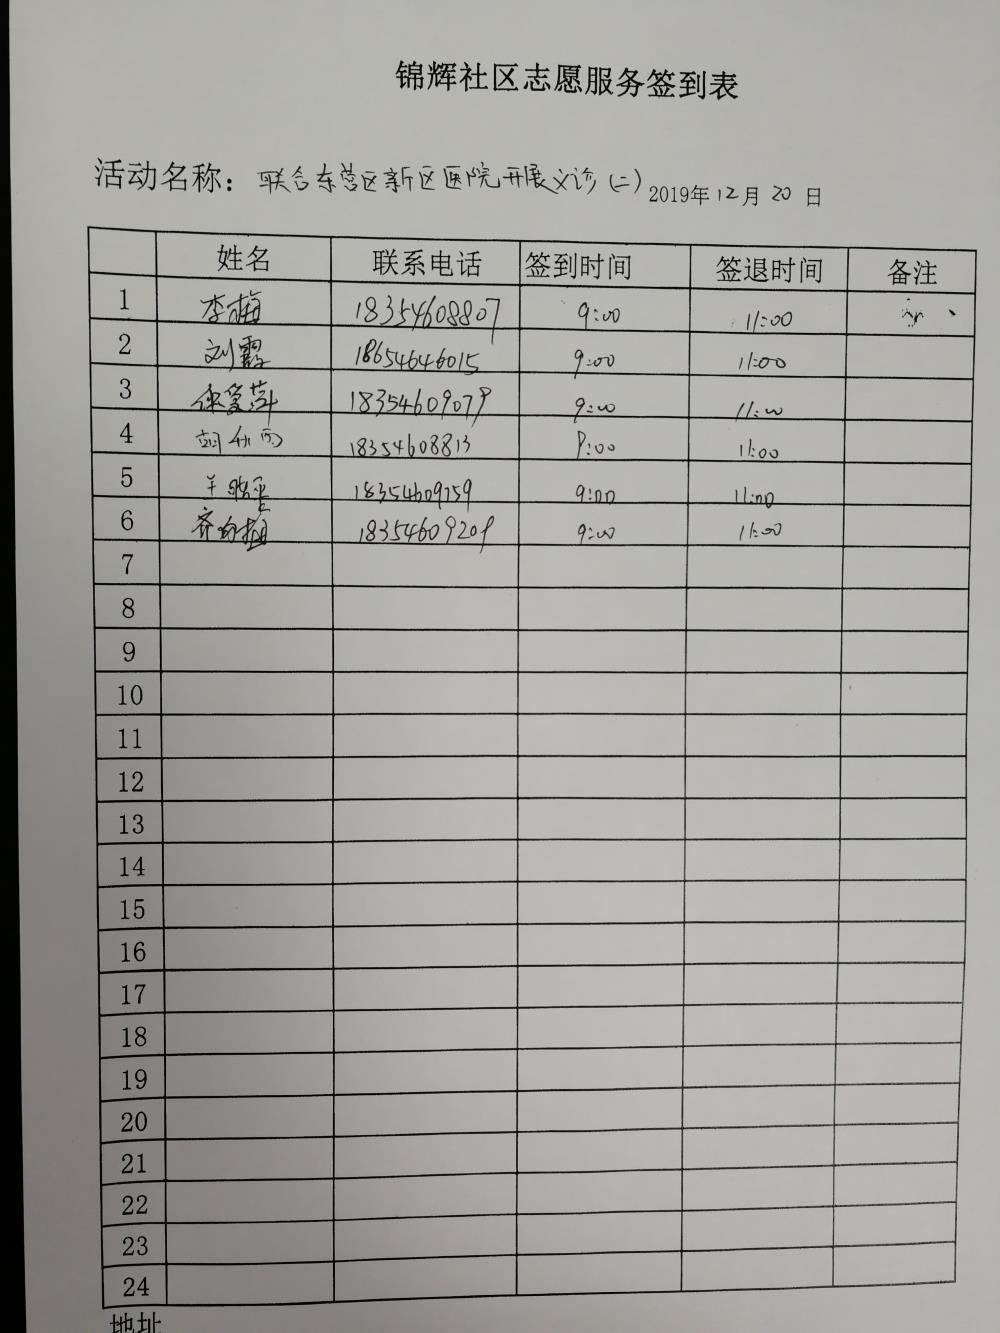 锦辉社区志愿服务签到表
活动名称：联合东营区新区医院开展义诊（二）2019年12月20日
姓名 联系电话 签到时间 签退时间 备注
1 李梅 18354608807 9:00 11:00
2 刘霞 18654646015 9:00 11:00
3 18354609079 9:00 11:00
4 18354608813 9:00 11:00
5 18354609759 9:00 11:00
6 18354609209 9:00 11:00
7
8
9
10
11
12
13
14
15
16
17
18
19
20
21
22
23
24
地址